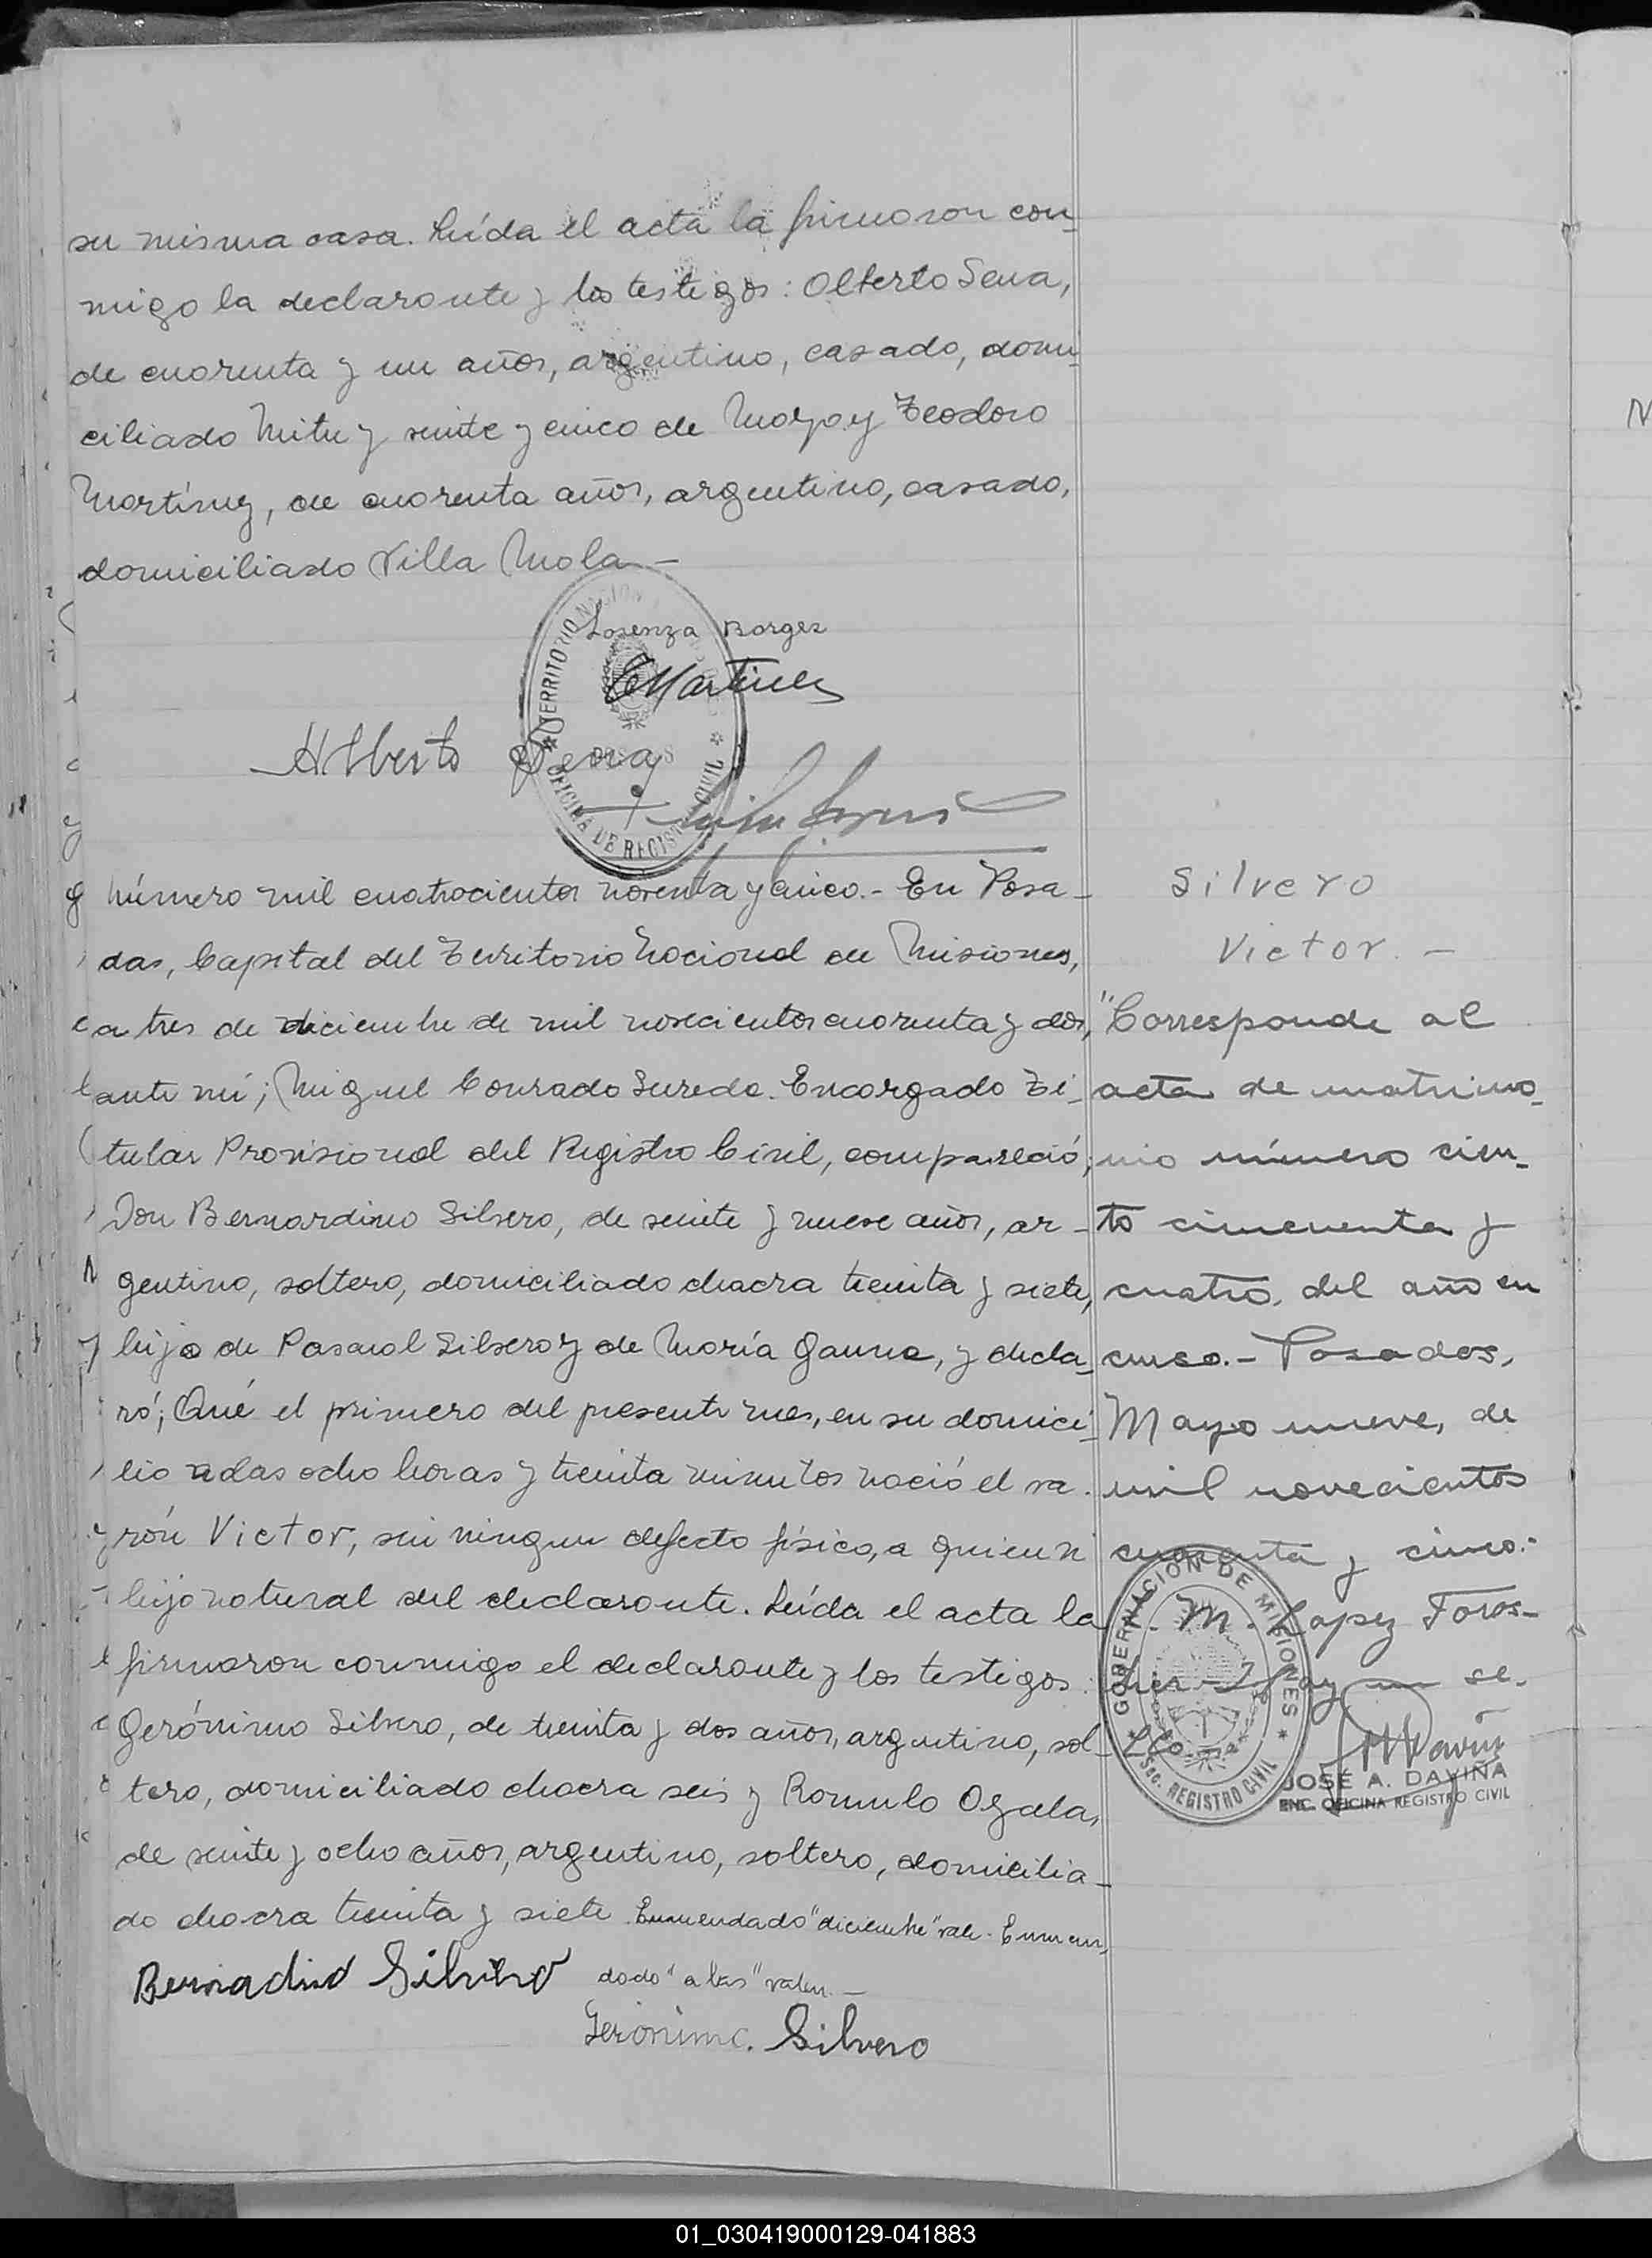 su misma casa. Leída el acta la firmaron con-
migo la declarante y los testigos: Alberto Sena,
de cuarenta y un años, argentino, casado, domi-
ciliado Mitre y veinte y cinco de Mayo y Teodoro
Martínez, de cuarenta años, argentino, casado,
domiciliado Villa Mola —
Lorenza Borges
TMartinez
Alberto Sena
TERRITORIO NACION
OFICINA DE REGIST CIVIL
Número mil cuatrocientos noventa y cinco.- En Posa-
das, Capital del Territorio Nacional de Misiones,
a tres de diciembre de mil novecientos cuarenta y dos,
ante mí; Miguel Conrado Sureda. Encargado Ti-
tular Provisional del Registro Civil, compareció;
Don Bernardino Silvero, de veinte y nueve años, ar-
gentino, soltero, domiciliado chacra treinta y siete,
hijo de Pascual Silvero y de María Gauna, y decla-
ró; Qué el primero del presente mes, en su domici-
lio a las ocho horas y treinta minutos nació el va-
rón Victor, sin ningun defecto físico, a quien
hijo natural del declarante. Leída el acta la
firmaron conmigo el declarante y los testigos:
Gerónimo Silvero, de treinta y dos años, argentino, sol-
tero, domiciliado chacra seis y Romulo Ogala,
de veinte y ocho años, argentino, soltero, domicilia-
do chacra treinta y siete. Enmendado "diciembre" vale. Enmen-
dado "a las" valen.—
Bernadino Silvero
Geronimo. Silvero
Silvero
Victor. —
"Corresponde al
acta de matrimo-
nio número cien-
to cincuenta y
cuatro, del año en
curso.- Posadas,
Mayo nueve, de
mil novecientos
cuarenta y cinco.-
M. Lopez Toros-
Hay un se-
llo
GOBERNACION DE MISIONES
Sec. REGISTRO CIVIL
JOSÉ A. DAVIÑA
ENC. OFICINA REGISTRO CIVIL
01_030419000129-041883